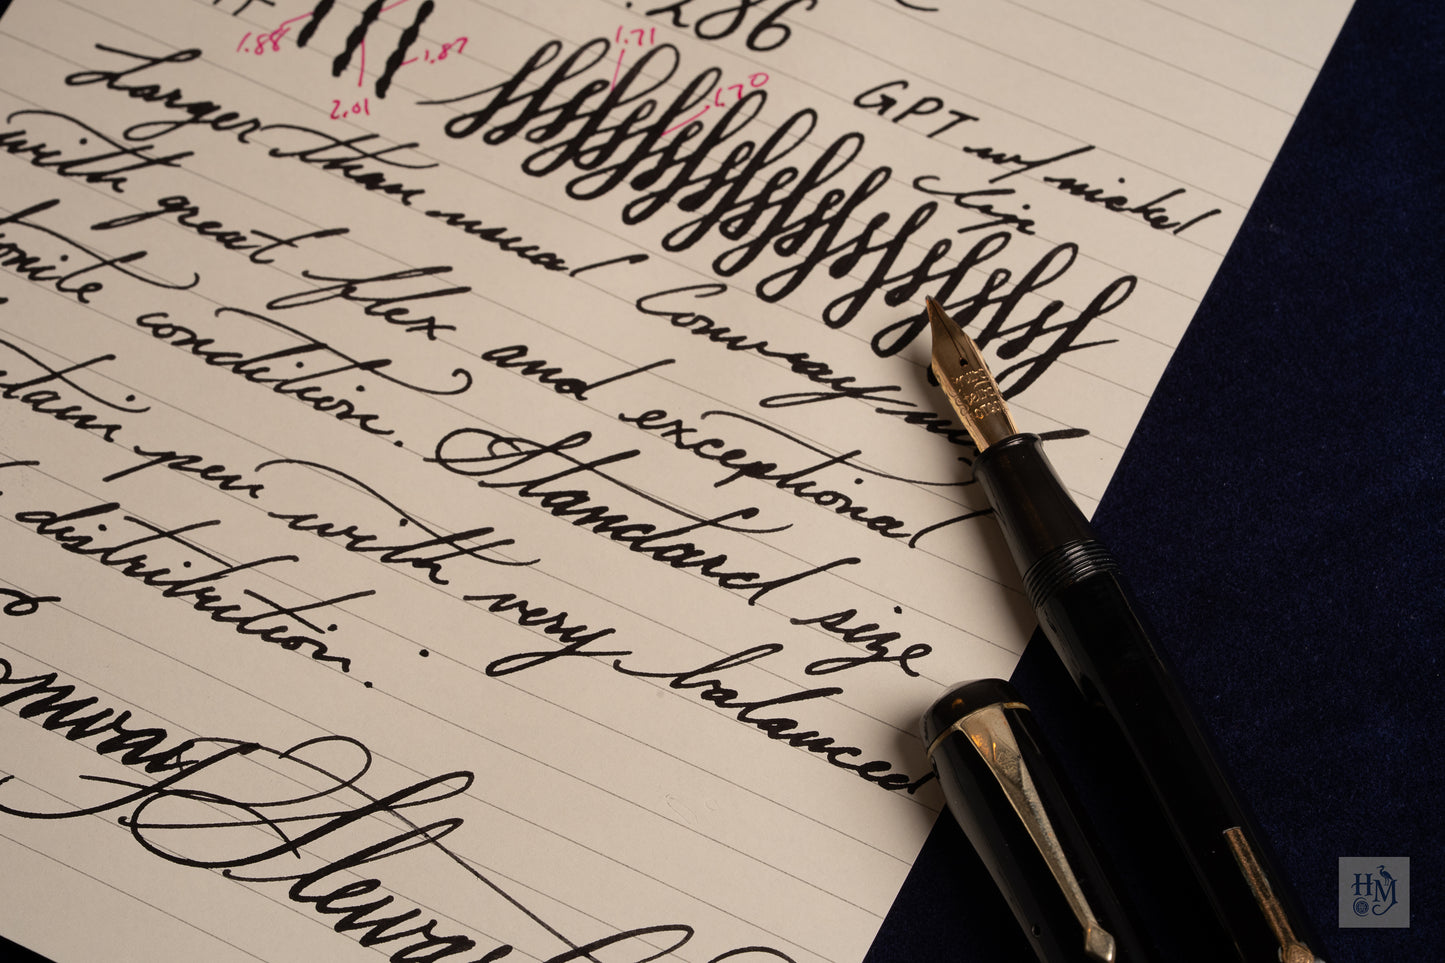 .286
1.88
1.87
2.01
1.71
1.70
GPT w/ nickel
clip
Larger than usual Conway
with great flex and exceptional
condition. Standard size
pen with very balanced
distribution.
Stewart
HM